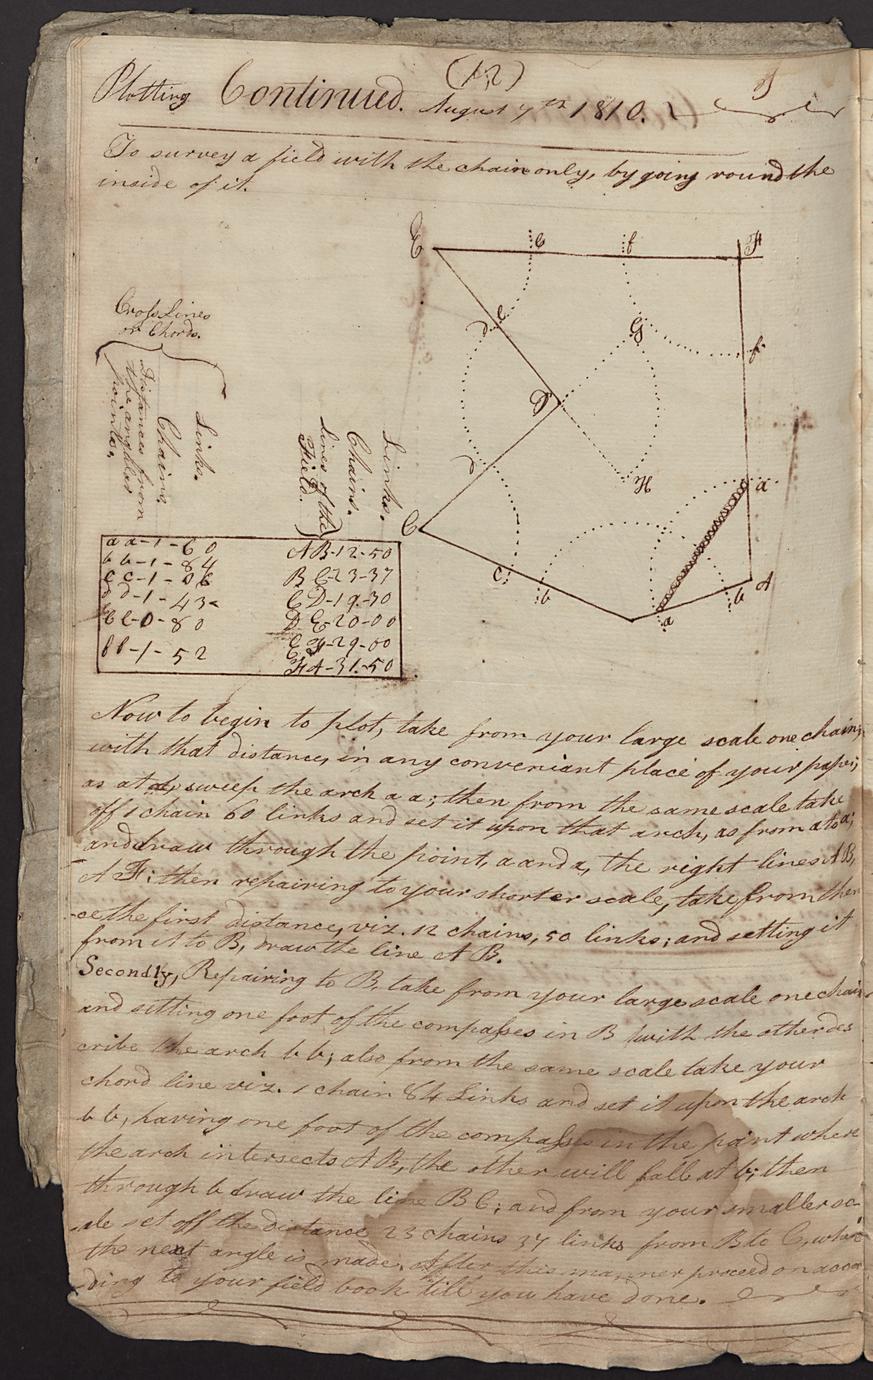 (12)
Plotting Continued. August 7th 1810.
To survey a field with the chain only, by going round the
inside of it.
E e f F
d e G f
D
d H a
C
c b a b A
Cross Lines
or Chords.
Distances from
the angular
points.
Chains.
Links.
Lines of the
Field.
Chains.
Links.
aa-1-60 AB-12-50
bb-1-84 BC-23-37
cc-1- CD-19-30
d-1-43 DE-20-00
ee-0-80 EF-29-00
ff-1-52 FA-31-50
Now to begin to plot, take from your large scale one chain,
with that distance, in any conveniant place of your paper,
as at sweep the arch a a; then from the same scale take
off 1 chain 60 links and set it upon that arch, as from a to a;
and draw through the point, a and a, the right lines AB,
AF: then repairing to your shorter scale, take from then
ce the first distance, viz. 12 chains, 50 links; and setting it
from A to B, draw the line AB.
Secondly, Repairing to B take from your large scale one chain
and sitting one foot of the compasses in B with the other des
cribe the arch b b; also from the same scale take your
chord line viz. 1 chain 84 Links and set it upon the arch
b b, having one foot of the compasses in the point where
the arch intersects AB, the other will fall at b; then
through b draw the line BC; and from your smaller sc-
ale set off the distance 23 chains 37 links from B to C, where
the next angle is made. After this manner proceed on accor
ding to your field book till you have done.